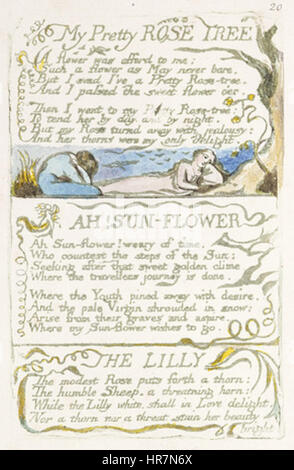 20
My Pretty ROSE TREE
A flower was offerd to me:
Such a flower as May never bore.
But I said I've a Pretty Rose-tree.
And I passed the sweet flower o'er.
Then I went to my Pretty Rose-tree:
To tend her by day and by night.
But my Rose turnd away with jealousy:
And her thorns were my only delight.
AH! SUN-FLOWER
Ah Sun-flower! weary of time.
Who countest the steps of the Sun:
Seeking after that sweet golden clime
Where the travellers journey is done.
Where the Youth pined away with desire,
And the pale Virgin shrouded in snow:
Arise from their graves and aspire,
Where my Sun-flower wishes to go.
THE LILLY
The modest Rose puts forth a thorn:
The humble Sheep, a threatning horn:
While the Lilly white, shall in Love delight,
Nor a thorn nor a threat stain her beauty
bright
alamy
Image ID: HR7N6X
www.alamy.com